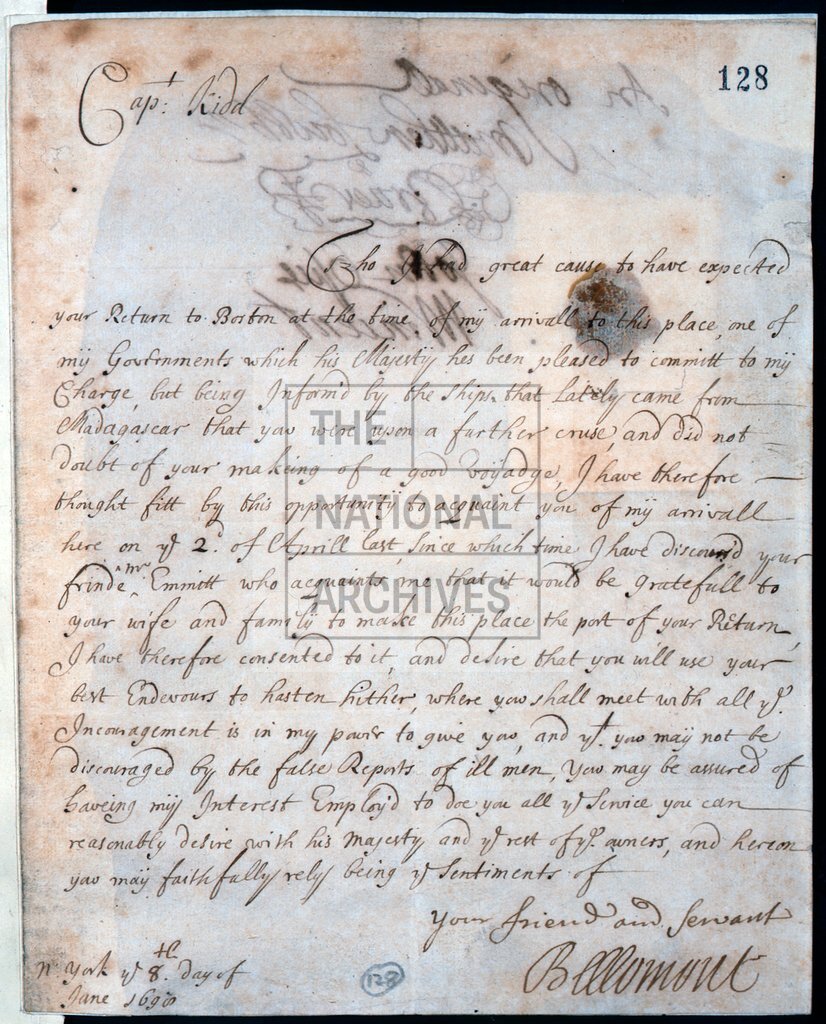 128
Capt: Kidd
Tho I had great cause to have expected
your Return to Boston at the time of my arrivall to this place, one of
my Governments which his Majesty hes been pleased to committ to my
Charge, but being Inform'd by the ships that Lately came from
Madagascar that you were upon a further cruse, and did not
doubt of your makeing of a good voyadge, I have therefore
thought fitt by this opportunity to acquaint you of my arrivall
here on ye 2d. of Aprill last, since which time I have discours'd your
frinde mr Emmitt who acquaints me that it would be gratefull to
your wife and family to make this place the port of your Return,
I have therefore consented to it, and desire that you will use your
best Endevours to hasten hither, where you shall meet with all ye.
Incouragement is in my power to give you, and yt. you may not be
discouraged by the false Reports of ill men, You may be assured of
haveing my Interest Employ'd to doe you all ye Service you can
reasonably desire with his Majesty and ye rest of ye. owners, and hereon
you may faithfully rely being ye Sentiments of
Your friend and servant
Bellomont
N. York ye 8th day of
June 1698
128
THE
NATIONAL
ARCHIVES